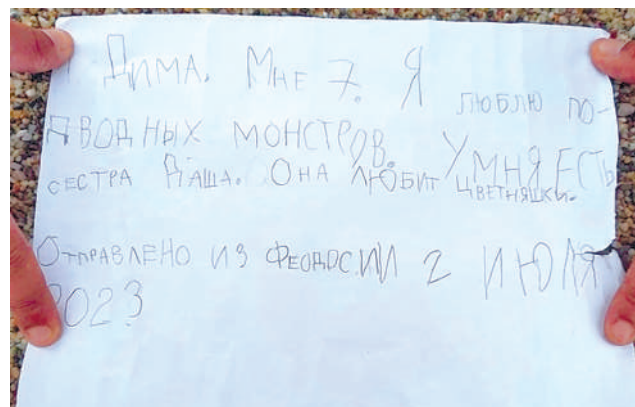 Я Дима. Мне 7. Я люблю по-
дводных монстров. У мня есть
сестра Даша. Она любит цветняшки.
Отправлено из Феодосии 2 июля
2023